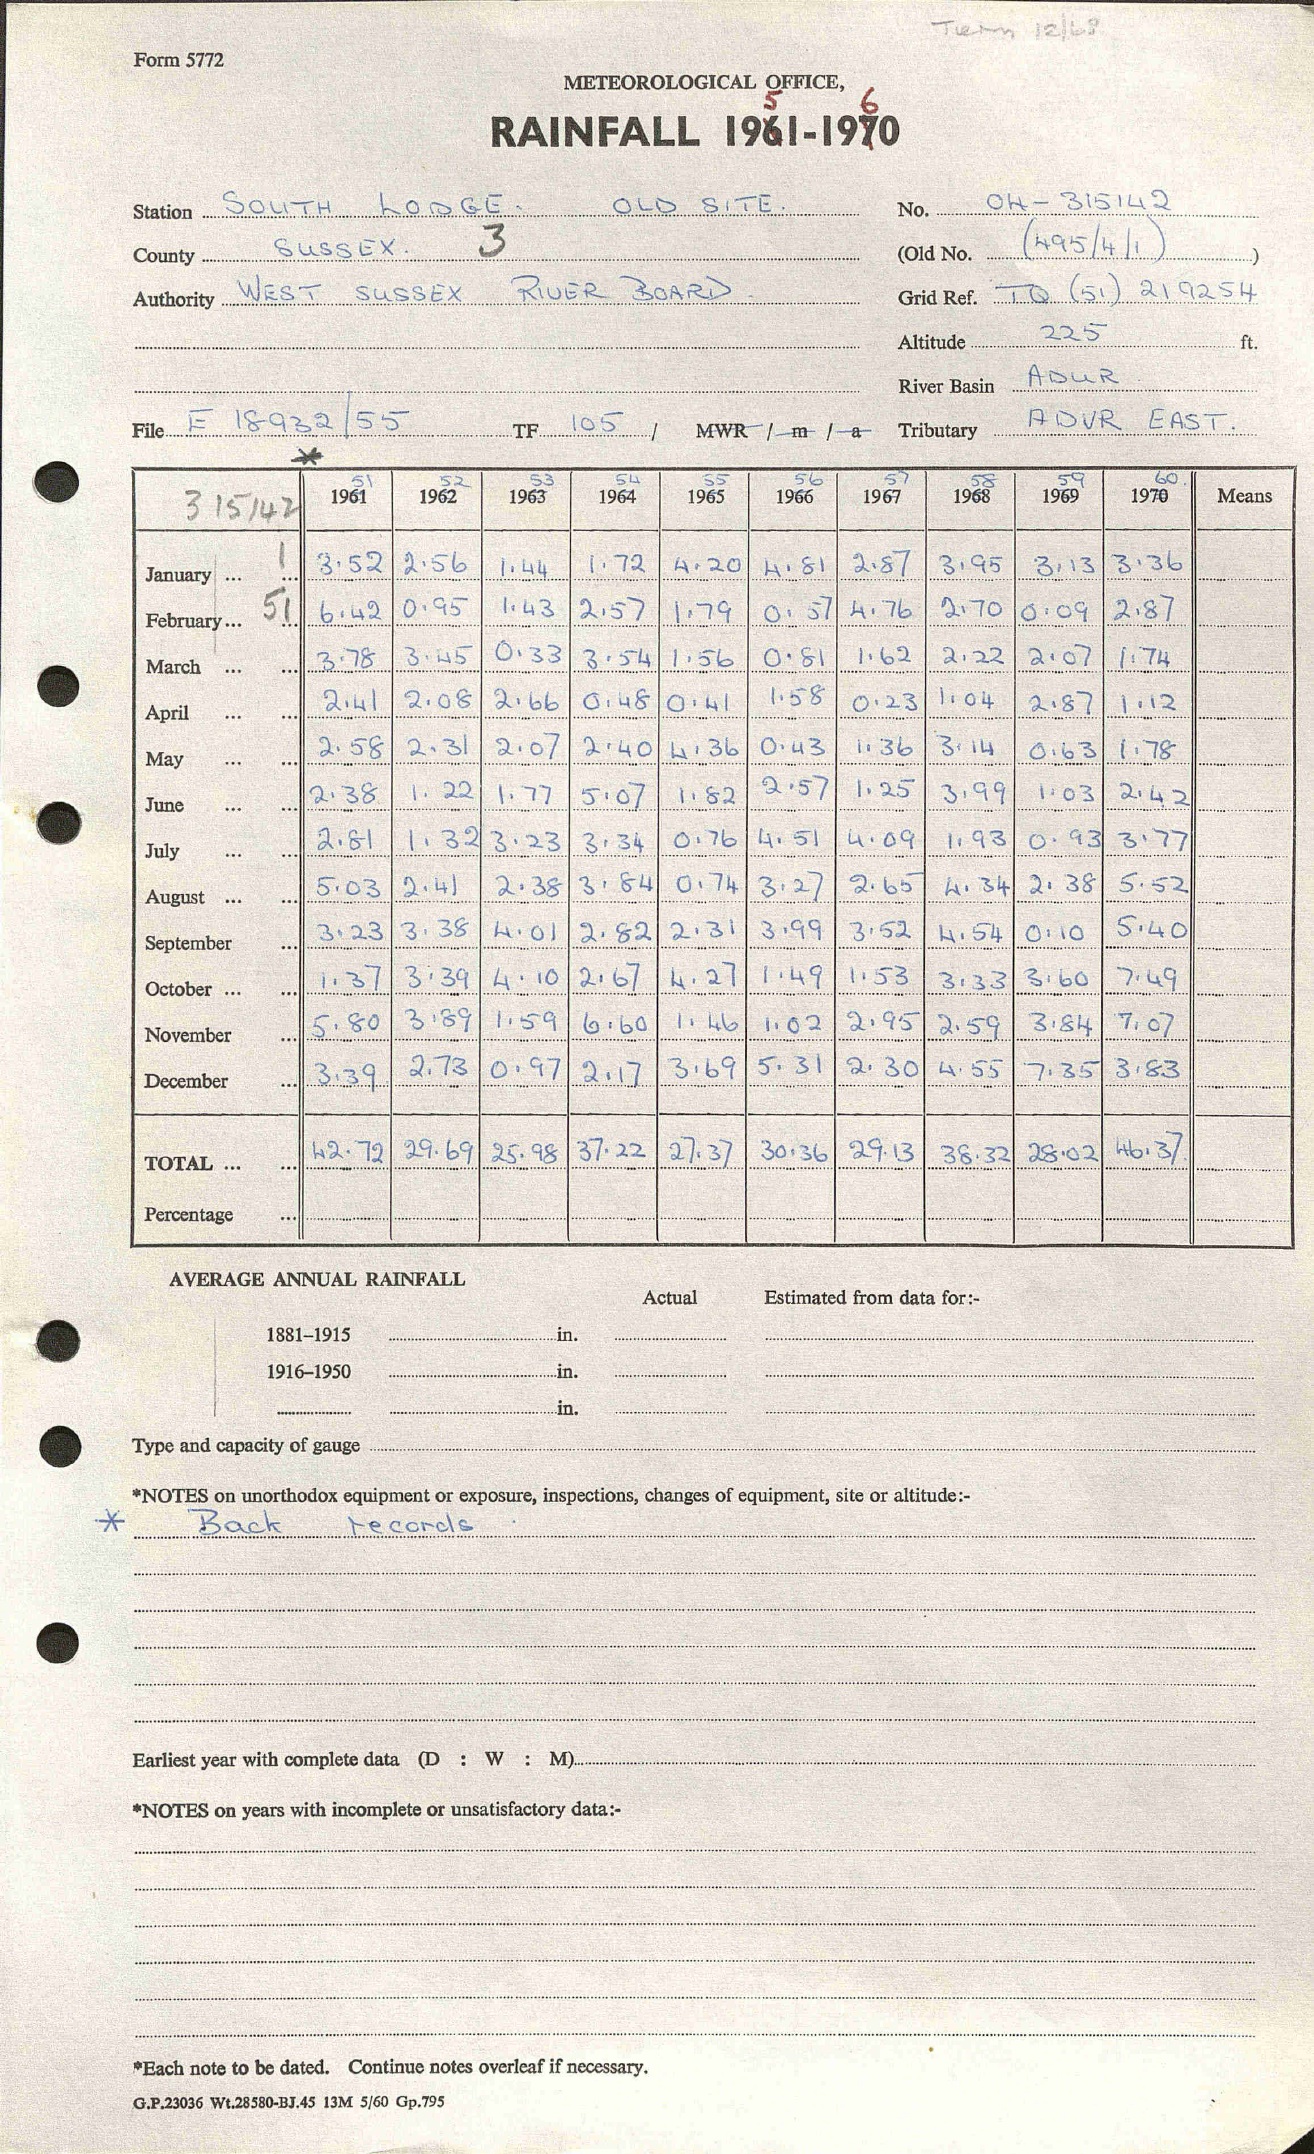 Term 12/68
Form 5772
METEOROLOGICAL OFFICE,
RAINFALL 1961-1970
5 6
Station SOUTH LODGE. OLD SITE. No. OH-315142
County SUSSEX. 3 (Old No. (495/4/1) )
Authority WEST SUSSEX RIVER BOARD. Grid Ref. TQ (51) 219254
Altitude 225 ft.
River Basin ADUR
File E 18932/55 TF 105 / MWR / m / a Tributary ADUR EAST.
*
51 52 53 54 55 56 57 58 59 60.
315142 1961 1962 1963 1964 1965 1966 1967 1968 1969 1970 Means
January ... 1 ... 3.52 2.56 1.44 1.72 4.20 4.81 2.87 3.95 3.13 3.36
February ... 51 ... 6.42 0.95 1.43 2.57 1.79 0.57 4.76 2.70 0.09 2.87
March ... ... 3.78 3.45 0.33 3.54 1.56 0.81 1.62 2.22 2.07 1.74
April ... ... 2.41 2.08 2.66 0.48 0.41 1.58 0.23 1.04 2.87 1.12
May ... ... 2.58 2.31 2.07 2.40 4.36 0.43 1.36 3.14 0.63 1.78
June ... ... 2.38 1.22 1.77 5.07 1.82 2.57 1.25 3.99 1.03 2.42
July ... ... 2.81 1.32 3.23 3.34 0.76 4.51 4.09 1.93 0.93 3.77
August ... ... 5.03 2.41 2.38 3.84 0.74 3.27 2.65 4.34 2.38 5.52
September ... 3.23 3.38 4.01 2.82 2.31 3.99 3.52 4.54 0.10 5.40
October ... ... 1.37 3.39 4.10 2.67 4.27 1.49 1.53 3.33 3.60 7.49
November ... 5.80 3.89 1.59 6.60 1.46 1.02 2.95 2.59 3.84 7.07
December ... 3.39 2.73 0.97 2.17 3.69 5.31 2.30 4.55 7.35 3.83
TOTAL ... ... 42.72 29.69 25.98 37.22 27.37 30.36 29.13 38.32 28.02 46.37
Percentage ...
AVERAGE ANNUAL RAINFALL
Actual Estimated from data for:-
1881–1915 in.
1916–1950 in.
in.
Type and capacity of gauge
*NOTES on unorthodox equipment or exposure, inspections, changes of equipment, site or altitude:-
* Back records
Earliest year with complete data (D : W : M)
*NOTES on years with incomplete or unsatisfactory data:-
*Each note to be dated. Continue notes overleaf if necessary.
G.P.23036 Wt.28580-BJ.45 13M 5/60 Gp.795